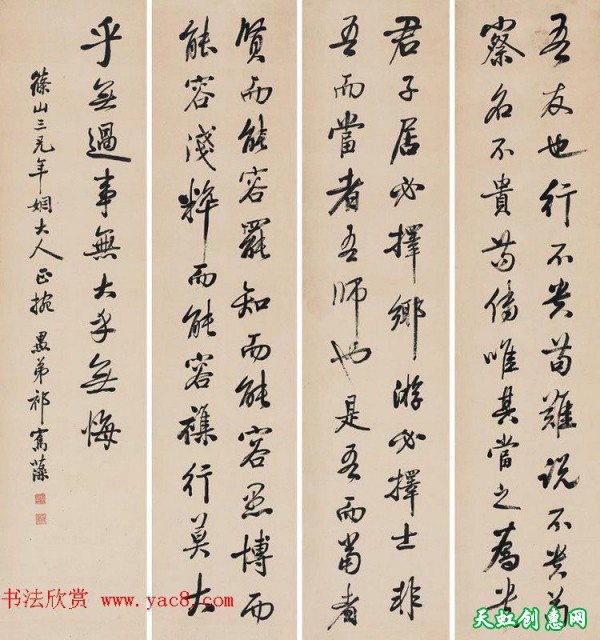 吾友也行不贵苟難说不贵苟
察名不貴苟傳唯其當之為贵
君子居必擇鄉游必擇士非
吾而當者吾師也是吾而當者
贤而能容罷知而能容愚博而
能容淺粹而能容雜行莫大
乎無過事無大乎無悔
篠山三兄年姻大人正捥 愚弟祁寯藻
书法欣赏 www.yac8.com
天虹创惠网